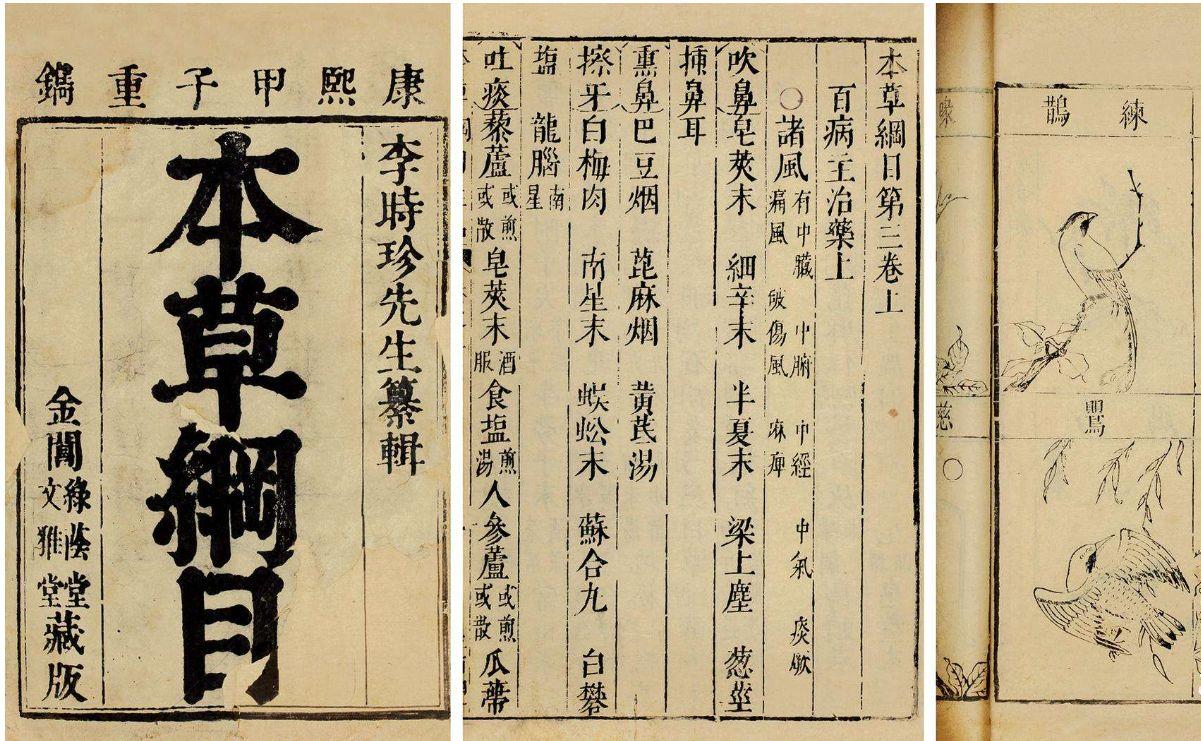 康熙甲子重鐫
李時珍先生纂輯
本草綱目
金閶綠蔭堂文雅堂藏版
本草綱目第三卷上
百病主治藥上
○諸風有中臟 中腑 中經 中氣 痰厥痛風 破傷風 麻痺
吹鼻皂莢末 細辛末 半夏末 梁上塵 葱莖
插鼻耳
熏鼻巴豆烟 蓖麻烟 黃芪湯
擦牙白梅肉 南星末 蜈蚣末 蘇合丸 白礬
塩 龍腦南星
吐痰藜蘆或煎或散 皂莢末酒服 食塩煎湯 人參蘆或煎或散 瓜蒂
練鵲
鸎